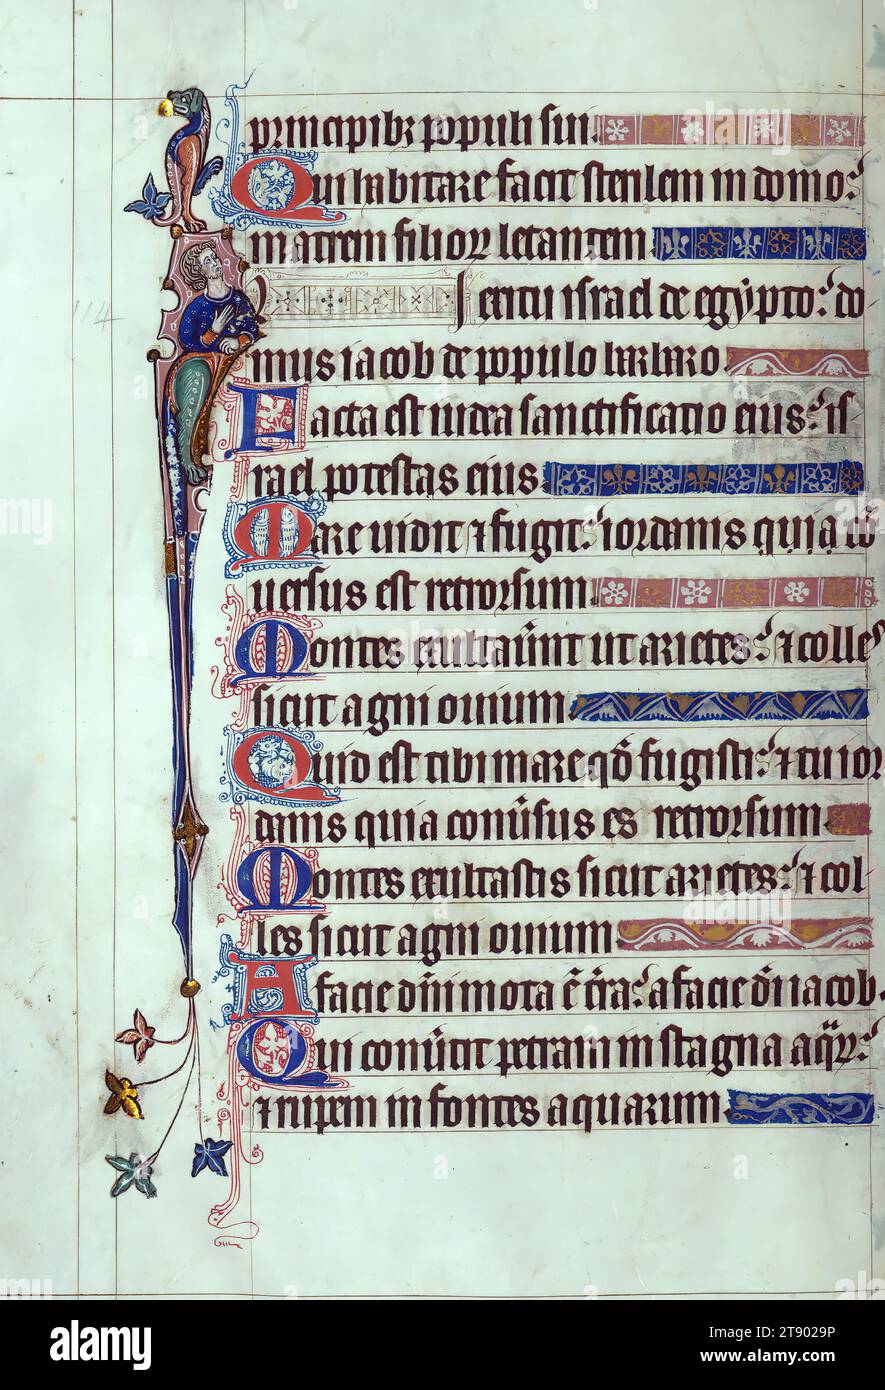 principibz populi sui.
Qui habitare facit sterilem in domo:
matrem filiorꝝ letantem
114
In exitu israel de egypto: do
mus iacob de populo barbaro
Facta est iudea sanctificatio eius: is
rael potestas eius
Mare uidit ⁊ fugit: iordanis quia cō
uersus est retrorsum
Montes exultauerunt ut arietes: ⁊ colles
sicut agni ouium
Quid est tibi mare qd̄ fugisti: ⁊ tu ior
danis quia conuersus es retrorsum
Montes exultastis sicut arietes: ⁊ col
les sicut agni ouium
A facie dn̄i mota ē t̄ra: a facie dī iacob
Qui conuertit petram in stagna aqꝝ:
⁊ rupem in fontes aquarum
alamy
Image ID: 2T9029P
www.alamy.com